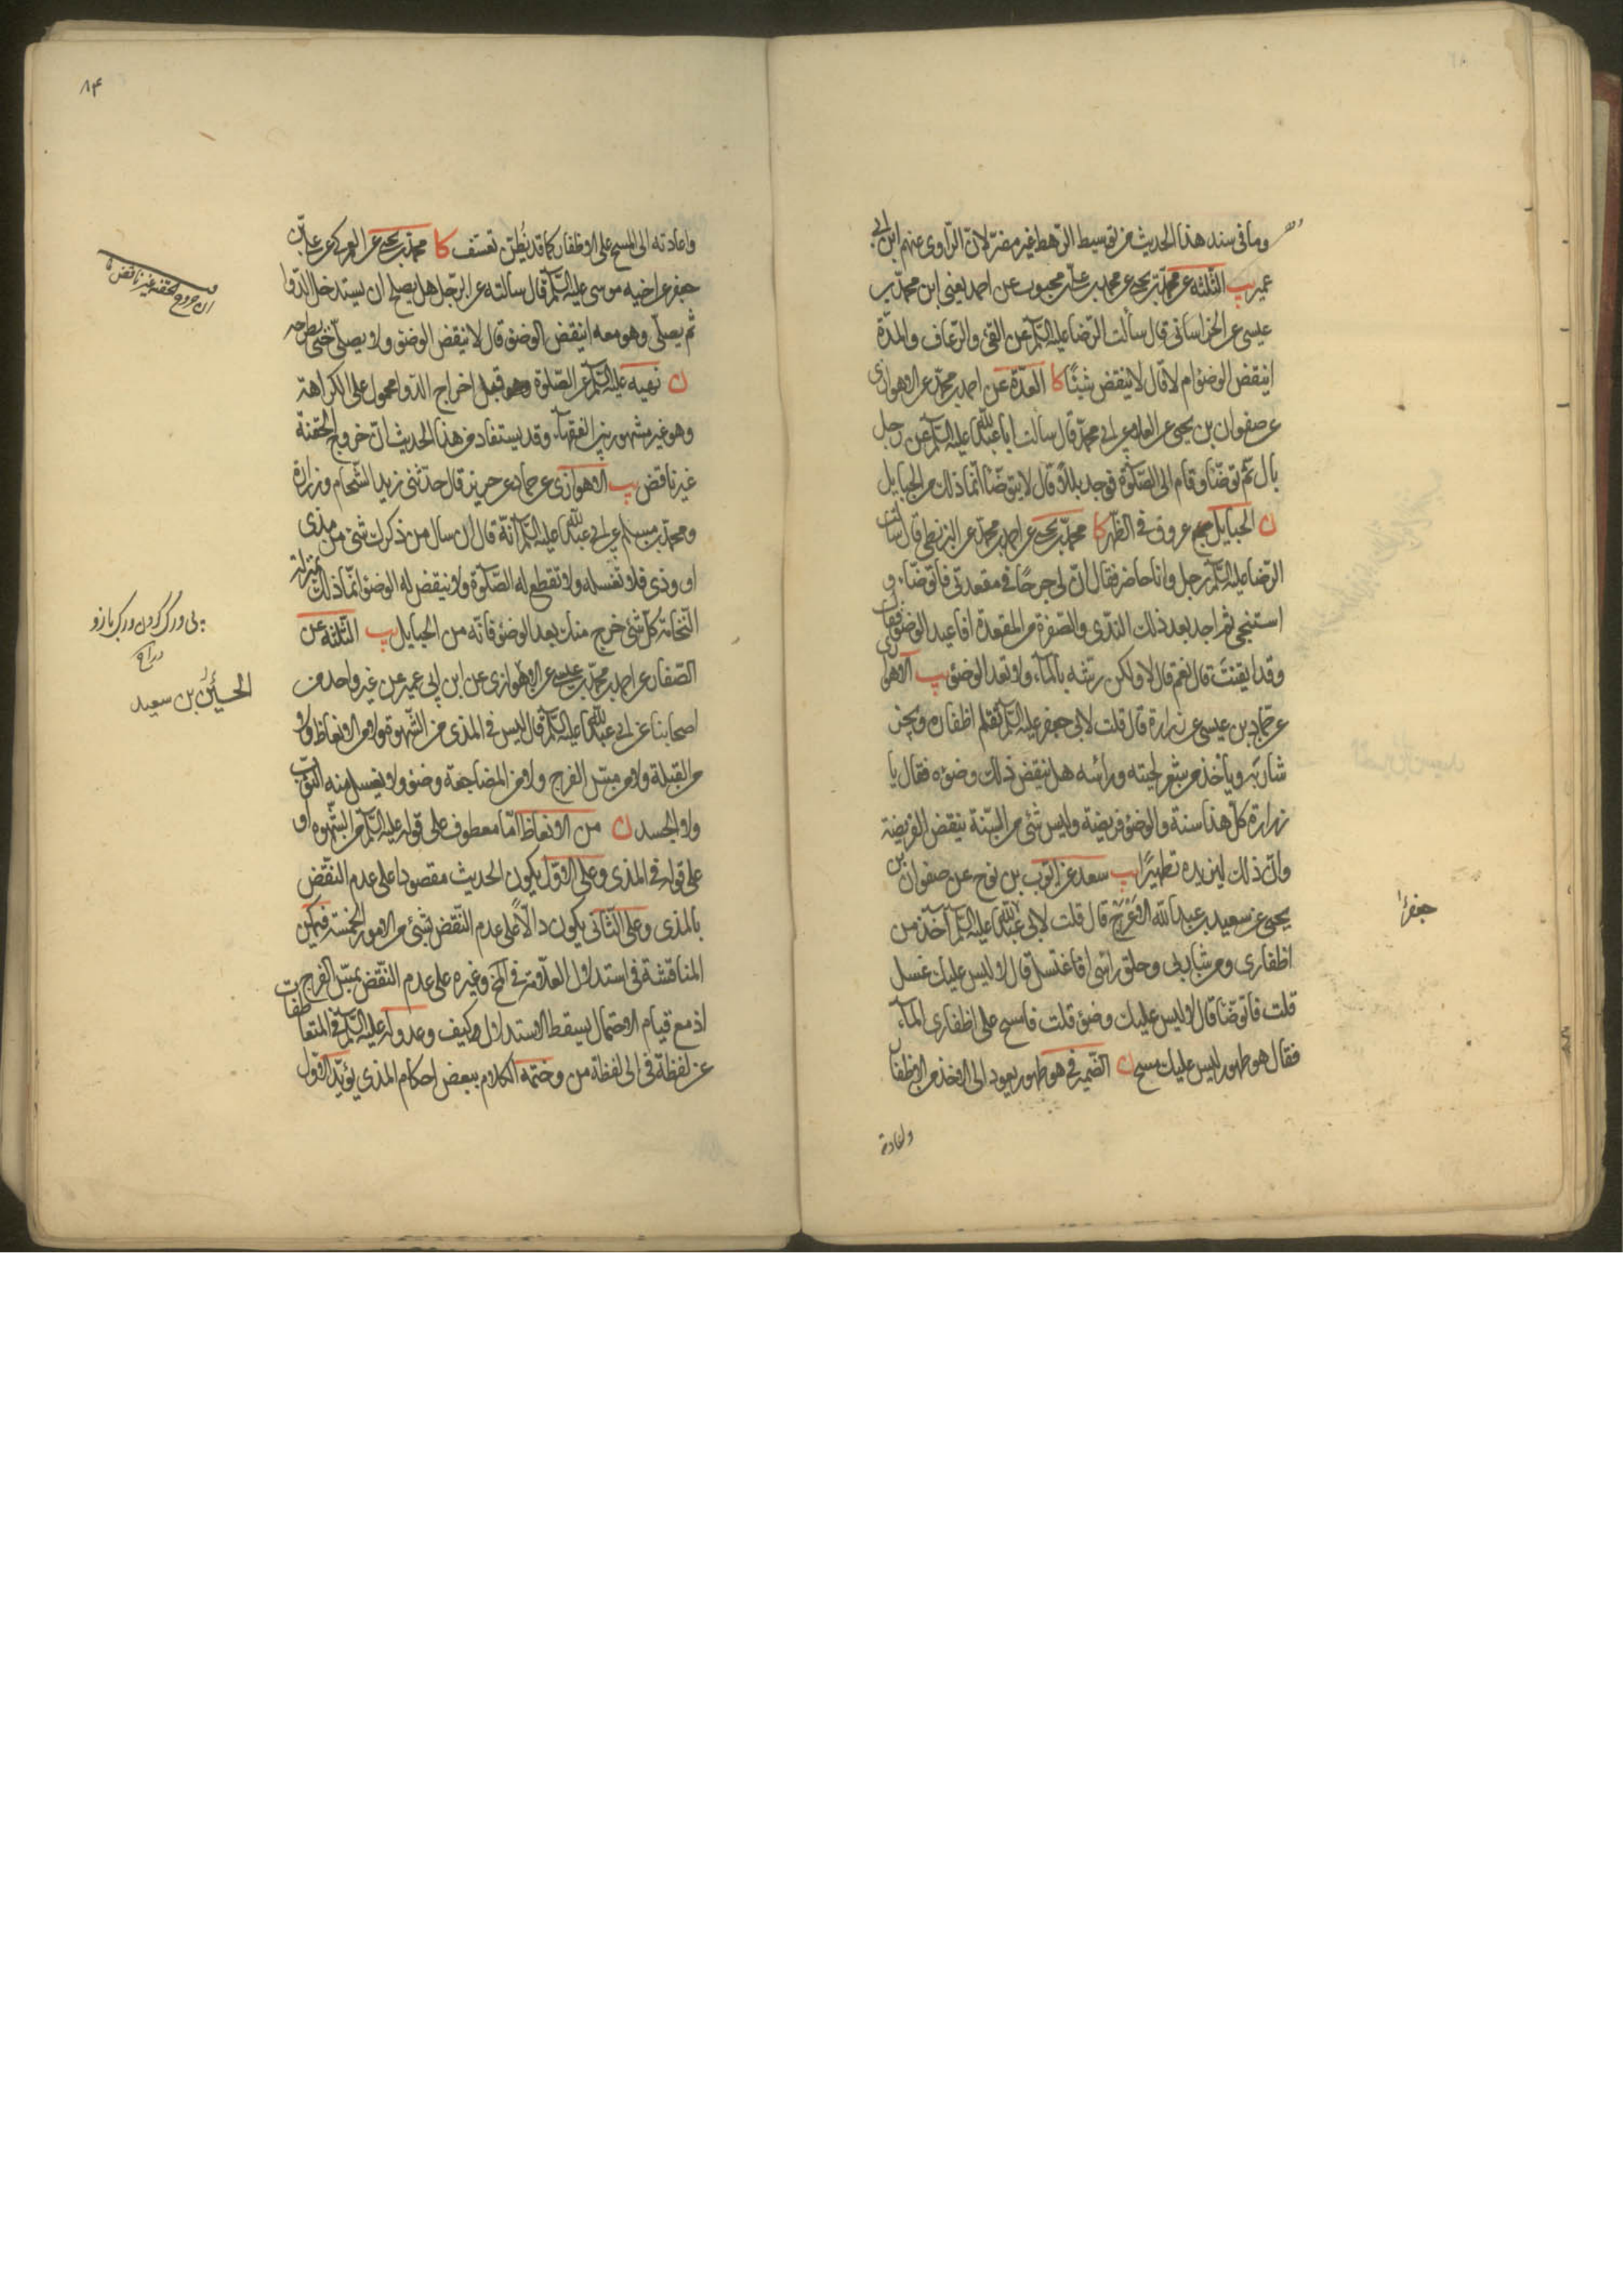 وما فى سند هذا الحديث من توسيط الرّهط غير مضرّ لانّ الرّاوى عنهم ابن ابى
عمير يب الثلثه عن محمّد بن يحيى عن محمد بن علىّ بن محبوب عن احمد يعنى ابن محمّد بن
عيسى عن الخراسانى قال سألت الرّضا عليه السّلم عن القئ والرّعاف والمدّة
اينقض الوضوء ام لا قال لا ينقض شيئًا كا العدّة عن احمد بن محمّد عن الاهوازى
عن صفوان بن يحيى عن العلاء عن ابى محمّد قال سألت ابا عبدالله عليه السّلم عن رجل
بال ثمّ توضّا وقام الى الصّلوة فوجد بللاً قال لا يتوضّا انّما ذلك من الحبايل
ن الحبايل عروق فى الظّهر كا محمّد بن يحيى عن احمد بن محمّد عن البزنطى قال سأل
الرّضا عليه السّلم رجل وانا حاضر فقال انّ لى جرحًا فى مقعدتى فاتوضّاء و
استنجى ثم اجد بعد ذلك النّدى والصّفرة من المقعدة افاعيد الوضوء فقال
وقد ايقنت قال نعم قال لا ولكن رشّه بالماء ولا تعد الوضوء يب الاهوازى
عن حمّاد بن عيسى عن زرارة قال قلت لابى جعفر عليه السّلم تقلم اظفاره ويجز
شاربه وياخذ من شعر لحيته ورأسه هل ينقض ذلك وضوءه فقال يا
زرارة كلّ هذا سنة والوضوء فريضة وليس شئ من السّنة ينقض الفريضة
وانّ ذلك ليزيده تطهيرًا يب سعد عن ايّوب بن نوح عن صفوان بن
يحيى عن سعيد بن عبدالله الاعرج قال قلت لابى عبدالله عليه السّلم آخذ من
اظفارى ومن شاربى وحلق رأسى افاغتسل قال لا ليس عليك غسل
قلت فاتوضّا قال لا ليس عليك وضوء قلت فامسح على اظفارى الماء
فقال هو طهور ليس عليك مسح ن الضّمير فى هو طهور يعود الى الاخذ من الاظفار
واعادته
جعفرا
٨٤
واعادته الى المسح على الاظفار كما قد يُظنّ تعسّف كا محمّد بن يحيى عن العمركى عن علىّ بن
جعفر عن اخيه موسى عليه السّلم قال سألته عن الرّجل هل يصلح ان يستدخل الدّوا
ثم يصلّى وهو معه اينقض الوضوء قال لا ينقض الوضوء ولا يصلّى حتى يطرحه
ن نهيه عليه السّلم عن الصّلوة قبل اخراج الدّوا محمول على الكراهة
وهو غير مشهور بين الفقهاء وقد يستفاد من هذا الحديث انّ خروج الحقنة
غير ناقض يب الاهوازى عن حماد عن حريز قال حدّثنى زيد الشّحام وزرارة
ومحمّد بن مسلم عن ابى عبدالله عليه السّلم انّه قال ان سال من ذكرك شئ من مذى
او وذى فلا تغسله ولا تقطع له الصّلوة ولا ينقض له الوضوء انّما ذلك بمنزلة
النّخامة كلّ شئ خرج منك بعد الوضوء فانّه من الحبايل يب الثلثه عن
الصّفار عن احمد بن محمّد بن عيسى عن الاهوازى عن ابن ابى عمير عن غير واحد من
اصحابنا عن ابى عبدالله عليه السّلم قال ليس فى المذى من الشّهوة ولا من الانعاظ ولا
من القبلة ولا من مسّ الفرج ولا من المضاجعة وضوء ولا يغسل منه الثوب
ولا الجسد ن من الانعاظ امّا معطوف على قوله عليه السّلم من الشّهوة او
على قوله فى المذى وعلى الاوّل يكون الحديث مقصودا على عدم النّقض
بالمذى وعلى الثانى يكون دالاً على عدم النّقض بشئ من الامور الخمسة فيمكن
المناقشة فى استدلال العلامة فى المخ وغيره على عدم النّقض بمسّ الفرج
اذ مع قيام الاحتمال يسقط الاستدلال وكيف وعدوله عليه السّلم فى المتعاطفات
عن لفظة فى الى لفظة من وختمه الكلام ببعض احكام المذى يؤيّد الاوّل
ان خروج الحقنه غير ناقضه
الحسين بن سعيد